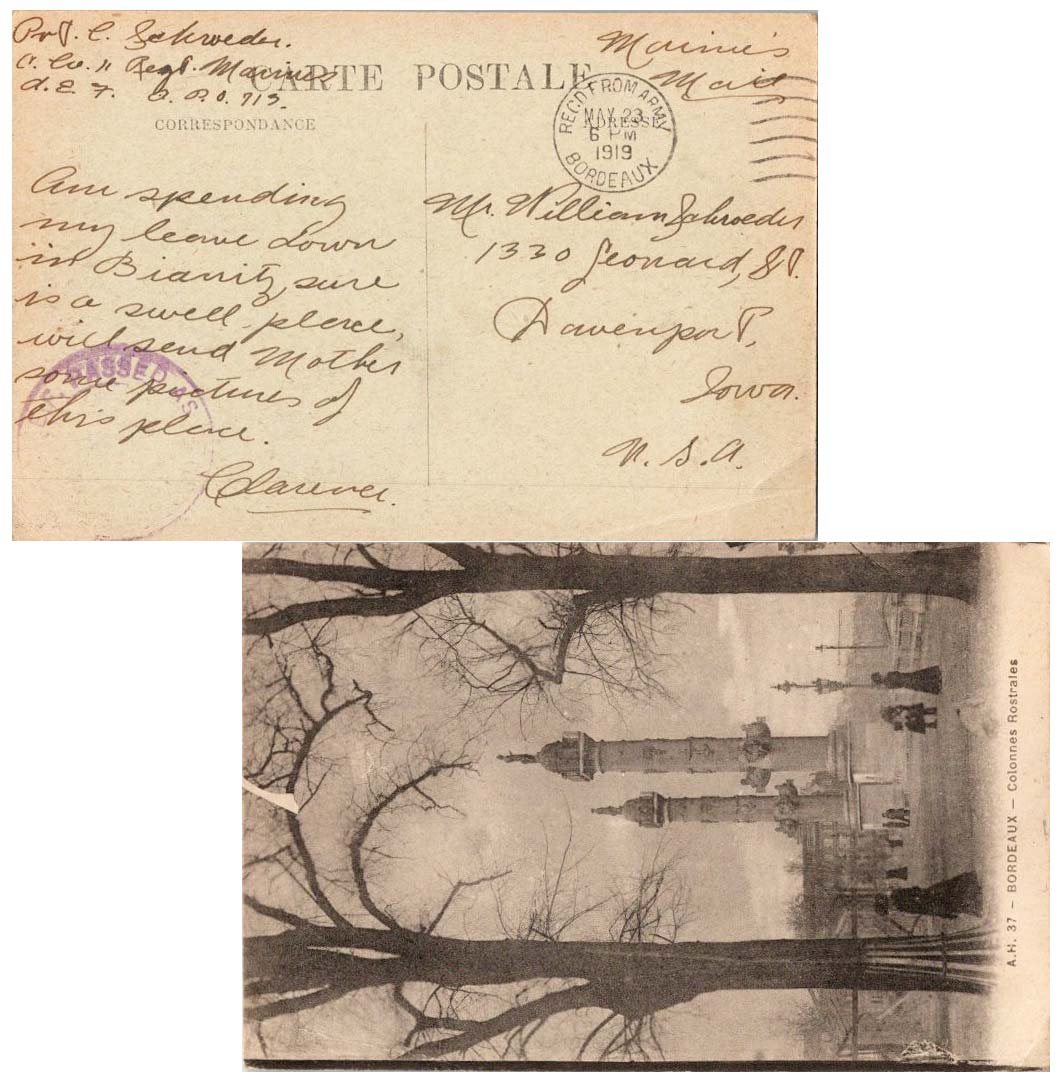 Pvt. C. Schroeder.
C. Co. 11 Regt. Marines
A. E. F. A. P. O. 713.
Marine's
Mail
CARTE POSTALE
CORRESPONDANCE
ADRESSE
REC'D FROM ARMY
MAY 23
6 PM
1919
BORDEAUX
Am spending
my leave down
in Biarritz, sure
is a swell place,
will send Mother
some pictures of
this place.
Clarence.
PASSED AS
Mr. William Schroeder
1330 Leonard, St.
Davenport,
Iowa.
U. S. A.
A.H. 37 — BORDEAUX — Colonnes Rostrales